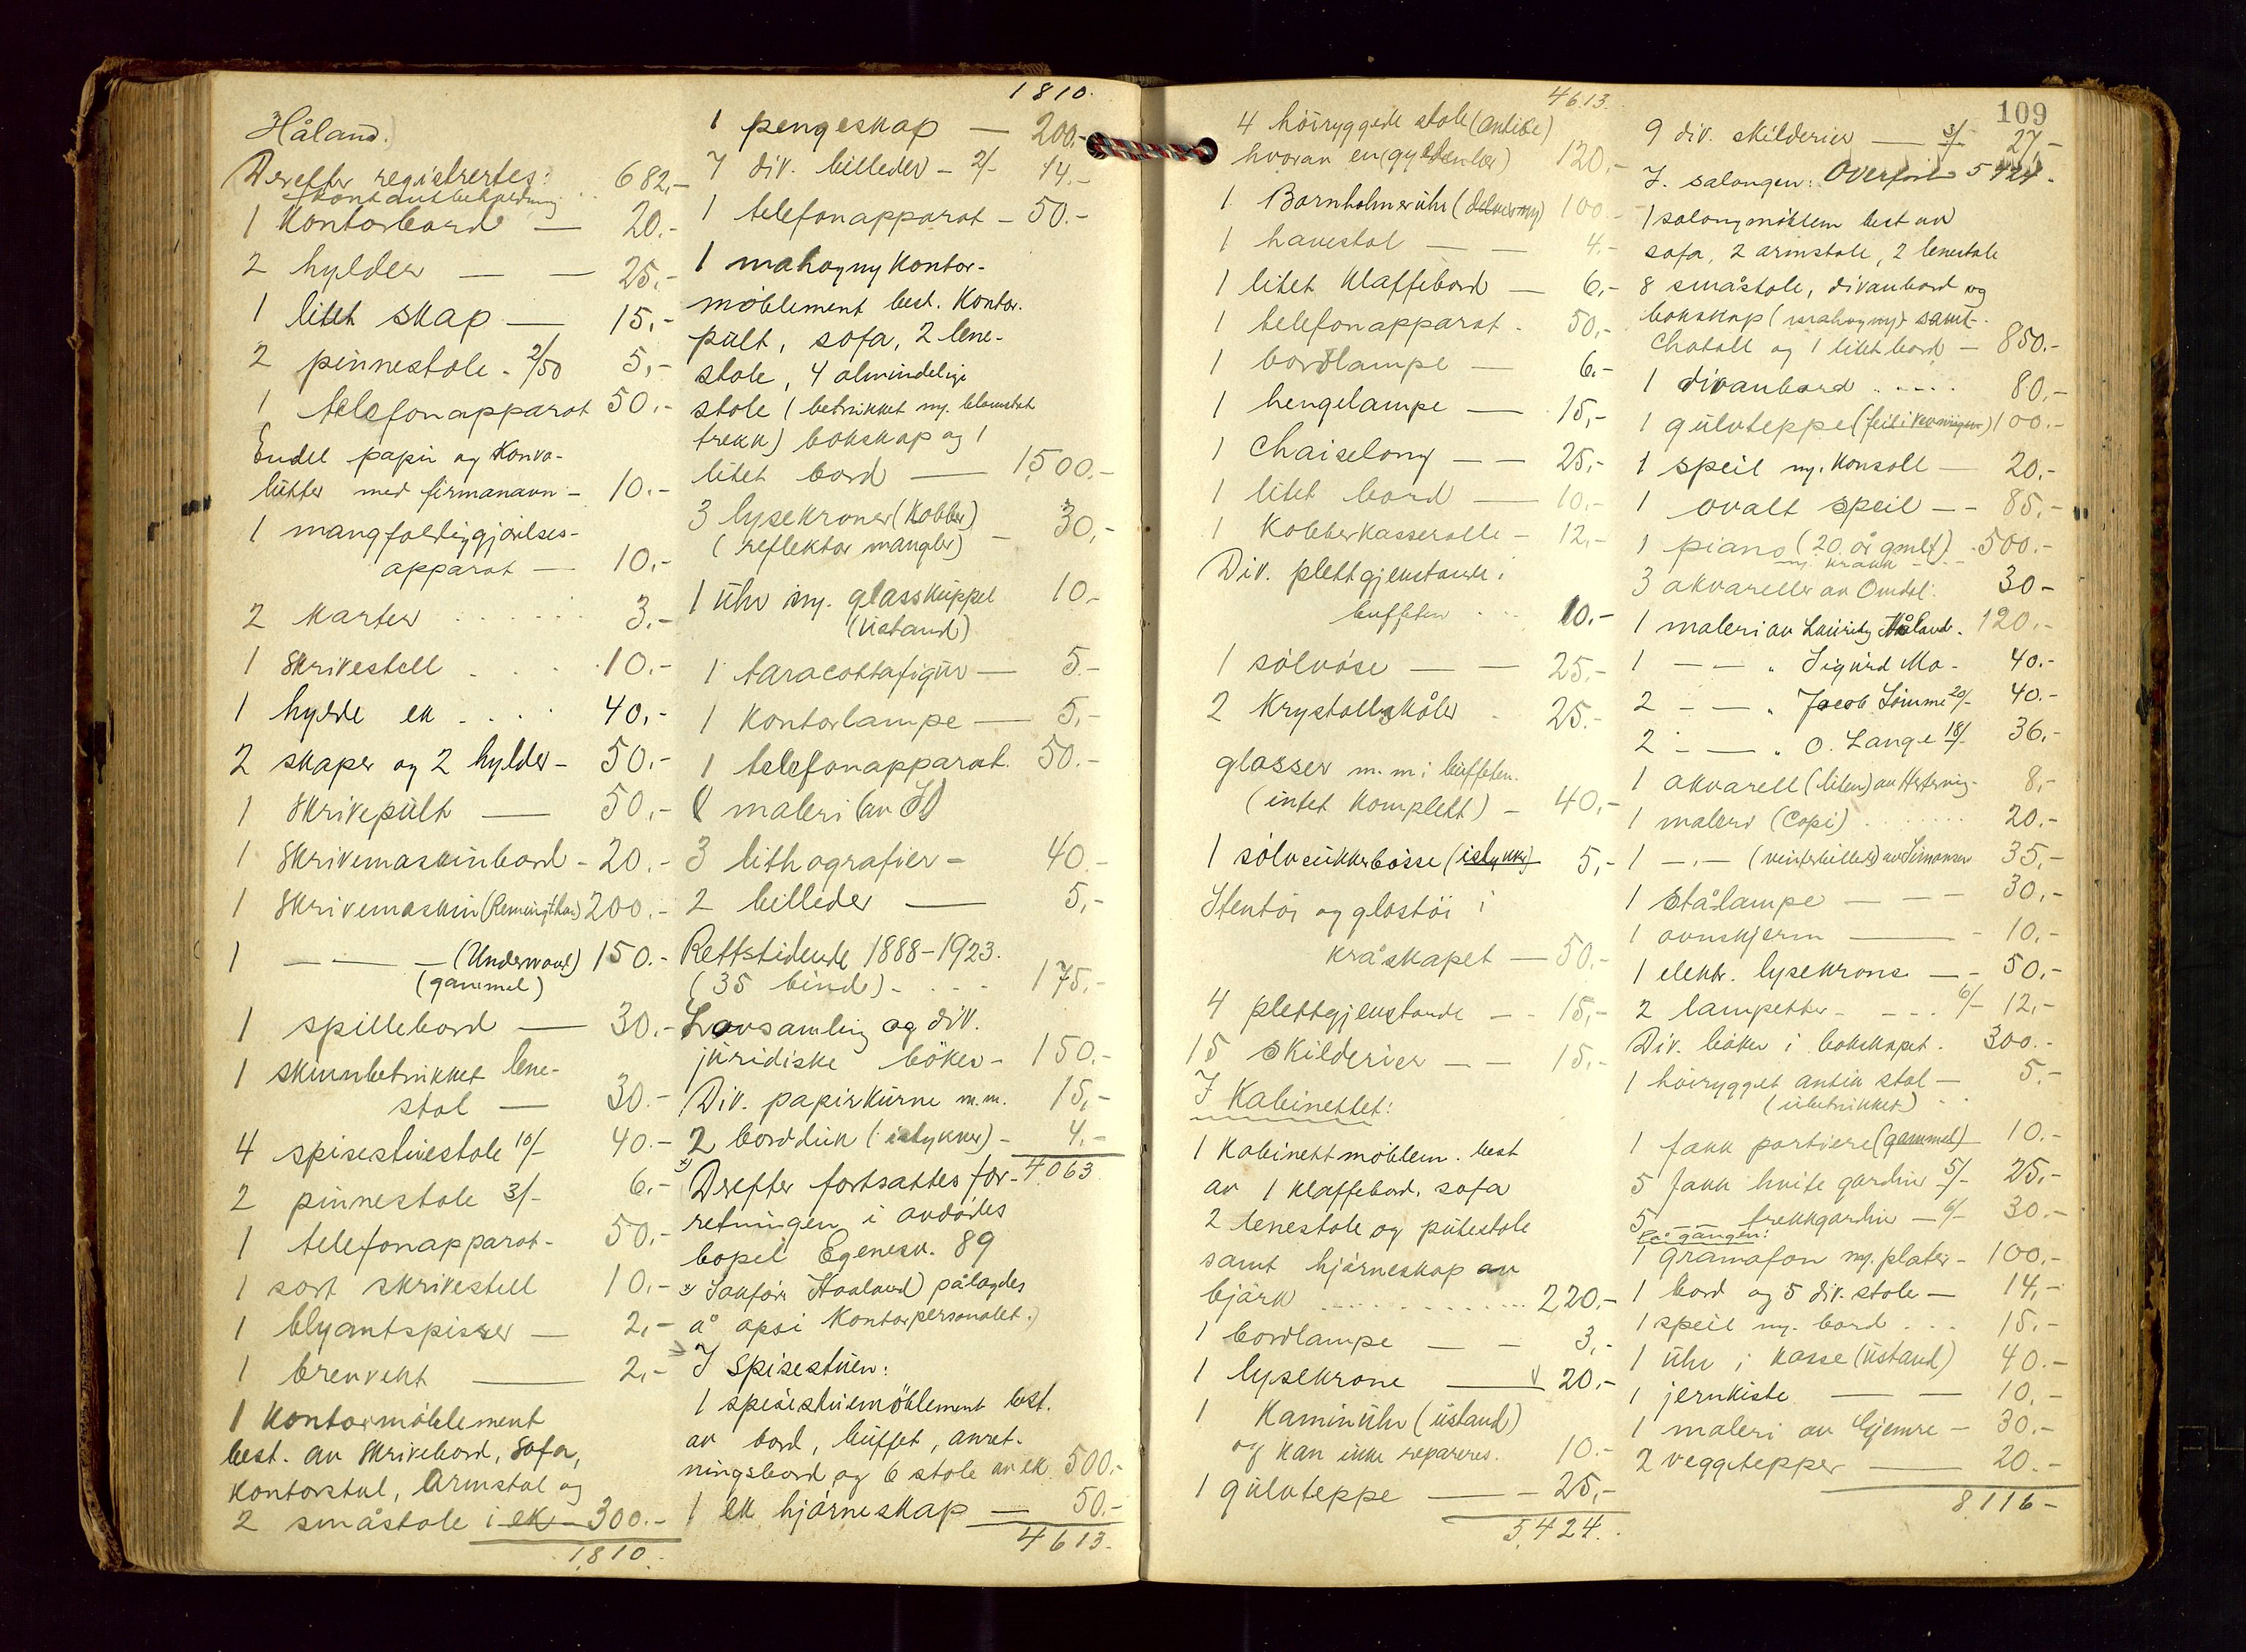 Håland.)
Derefter registrertes:
Kontantbeholdning . . 682,-
1 Kontorbord — 20.-
2 hylder — — 25,-
1 litet skap — 15,-
2 pinnestole - 2/50 5,-
1 telefonapparat 50.-
Endel papir og Konvo-
lutter med firmanavn - 10.-
1 mangfoldiggjørelses-
apparat — 10,-
2 Karter . . . . . . 3.-
1 Skrivestell . . . 10.-
1 hylde ek . . . . 40,-
2 skaper og 2 hylder - 50.-
1 Skrivepult — 50,-
1 Skrivemaskinbord - 20.-
1 Skrivemaskin (Remington) 200.-
1 — — — (Underwood) 150.-
(gammel)
1 spillebord — 30.-
1 skinnbetrukket lene-
stol — 30.-
4 spisestuestole 10/- 40.-
2 pinnestole 3/- 6,-
1 telefonapparat - 50.-
1 sort skrivestell 10.-
1 blyantspisser — 2,-
1 brevvekt — 2,-
1 Kontormöblement
best. av Skrivebord, Sofa,
Kontorstol, Armstol og
2 småstole i ek — 300.-
1,810.-
1810.
1 pengeskap — 200,-
7 div. billeder - 2/- 14.-
1 telefonapparat - 50.-
1 mahogny Kontor-
möblement best. Kontor-
pult, sofa, 2 lene-
stole, 4 almindelige
stole (betrukket m. blomstret
trekk) bokskap og 1
litet bord — 1,500.-
3 lysekroner (Kobber)
(reflektor mangler) - 30,-
1 Uhr m. glasskuppel 10.-
(ustand)
1 taracottafigur — 5.-
1 Kontorlampe — 5,-
1 telefonapparat. 50.-
1 maleri (av
3 lithografier - 40.-
2 billeder — 5,-
Rettstidende 1888-1923.
(35 bind) - . . . 175,-
Lovsamling og div.
juridiske böker - 150.-
Div. papirkurve m.m. 15,-
2 bordduk (i stykker) - 4.-
4,063
x) Derefter fortsattes for-
retningen i avdödes
bopel Egenesv. 89
x) Jonfönn Haaland) pålagdes
å opsi Kontorpersonalet.)
I spisestuen:
1 spisestuemöblement best.
av bord, buffet, anret-
ningsbord og 6 stole av ek. 500.-
1 ek hjörneskap — 50.-
4613.-
109
4613.
4 höiryggede stole (antike)
hvorav en (gyldenlær) 120.-
1 Bornholmeruhr 100.-
1 havestol — — 4.-
1 litet Klaffebord — 6,-
1 telefonapparat . 50,-
1 bordlampe — 6.-
1 hengelampe — 15,-
1 Chaiselong — — 25,-
1 litet bord — 10.-
1 Kobberkasserolle - 12,-
Div. plettgjenstande i
buffeten . . . 10.-
1 sölvöse — — 25.-
2 Krystallskåler . 25.-
glasser m.m i buffeten.
(intet Komplett) - 40,-
1 sölvsukkerbösse (istykker) 5,-
Stentöi og glastöi i
kråskapet — 50,-
4 plettgjenstande — - 15,-
15 skilderier — — 15,-
I Kabinettet:
1 Kabinettmöblem. best
av 1 Klaffebord, sofa
2 lenestole og putestole
samt hjörneskap av
björk . . . . . . . 220,-
1 bordlampe — - 3,-
1 lysekrone — 20,-
1 Kaminuhr (ustand)
og kan ikke repareres. 10.-
1 gulvteppe — - 25,-
5,424.-
9 div. skilderier — 3/- 27,-
I. salongen: Overfört 5424.
1 salongmöblem best av
sofa, 2 armstole, 2 lenestole
8 småstole, divanbord og
bokskap (mahogny) samt
Chatoll og 1 litet bord — 850.-
1 divanbord . . . . . 80,-
1 gulvteppe (feil i vevningen) 100.-
1 speil m. Konsoll — 20.-
1 ovalt speil — - 85,-
1 piano (20 år gmlt) . 500.-
m. krakk
3 akvareller av Omdal: 30-
1 maleri av Lauritz Håland. 120.-
1 — - „ Sigurd Mo - 40.-
2 — — „ Jacob Sömme 20/- 40.-
2 — — „ O. Lange 18/- 36,-
1 akvarell (liten) av Hertervig - 8,-
1 maleri (Copi) . . . . . 20.-
1 —„— (vinterbillede) av Simonsen 35,-
1 Stålampe — — - 30,-
1 ovnskjerm — - 10,-
1 elektr. lysekrone — - 50,-
2 lampetter - - - . 6/- 12,-
Div. böker i bokskapet . 300.-
1 höirygget antik stol — 5,-
(ubetrukket) . .
1 fakk portiere (gammel) 10.-
5 fakk hvite gardin 5/- 25,-
5 — — trekkgardin - 6/- 30.-
På gangen:
1 gramafon m. plater - 100.-
1 bord og 5 div. stole — 14,-
1 speil m. bord . . . 15.-
1 Uhr i kasse (ustand) 40.-
1 jernkiste — — 10.-
1 maleri av Gjemre — 30.-
2 veggtepper — 20.-
8,116-